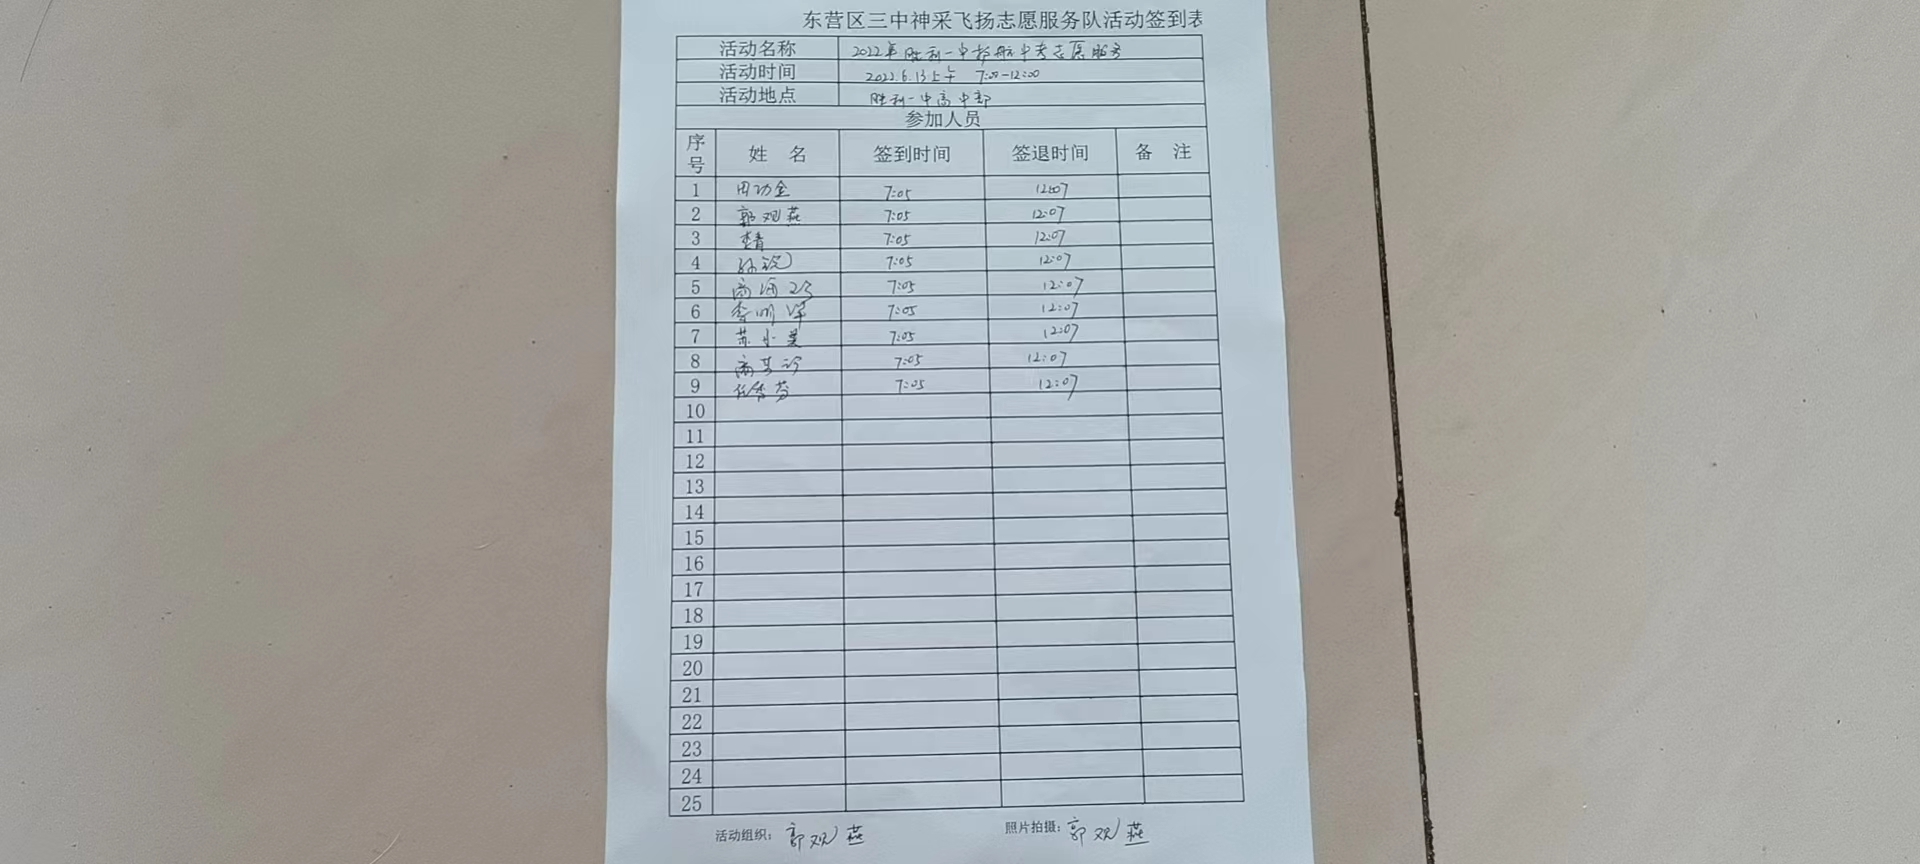 东营区三中神采飞扬志愿服务队活动签到表
活动名称 2022年胜利一中护航中考志愿服务
活动时间 2022.6.13上午 7:00-12:00
活动地点 胜利一中高中部
参加人员
序号 姓 名 签到时间 签退时间 备 注
1 田功全 7:05 12:07
2 郭观燕 7:05 12:07
3 7:05 12:07
4 7:05 12:07
5 7:05 12:07
6 7:05 12:07
7 苏小美 7:05 12:07
8 7:05 12:07
9 任秀芬 7:05 12:07
10
11
12
13
14
15
16
17
18
19
20
21
22
23
24
25
活动组织：郭观燕 照片拍摄：郭观燕